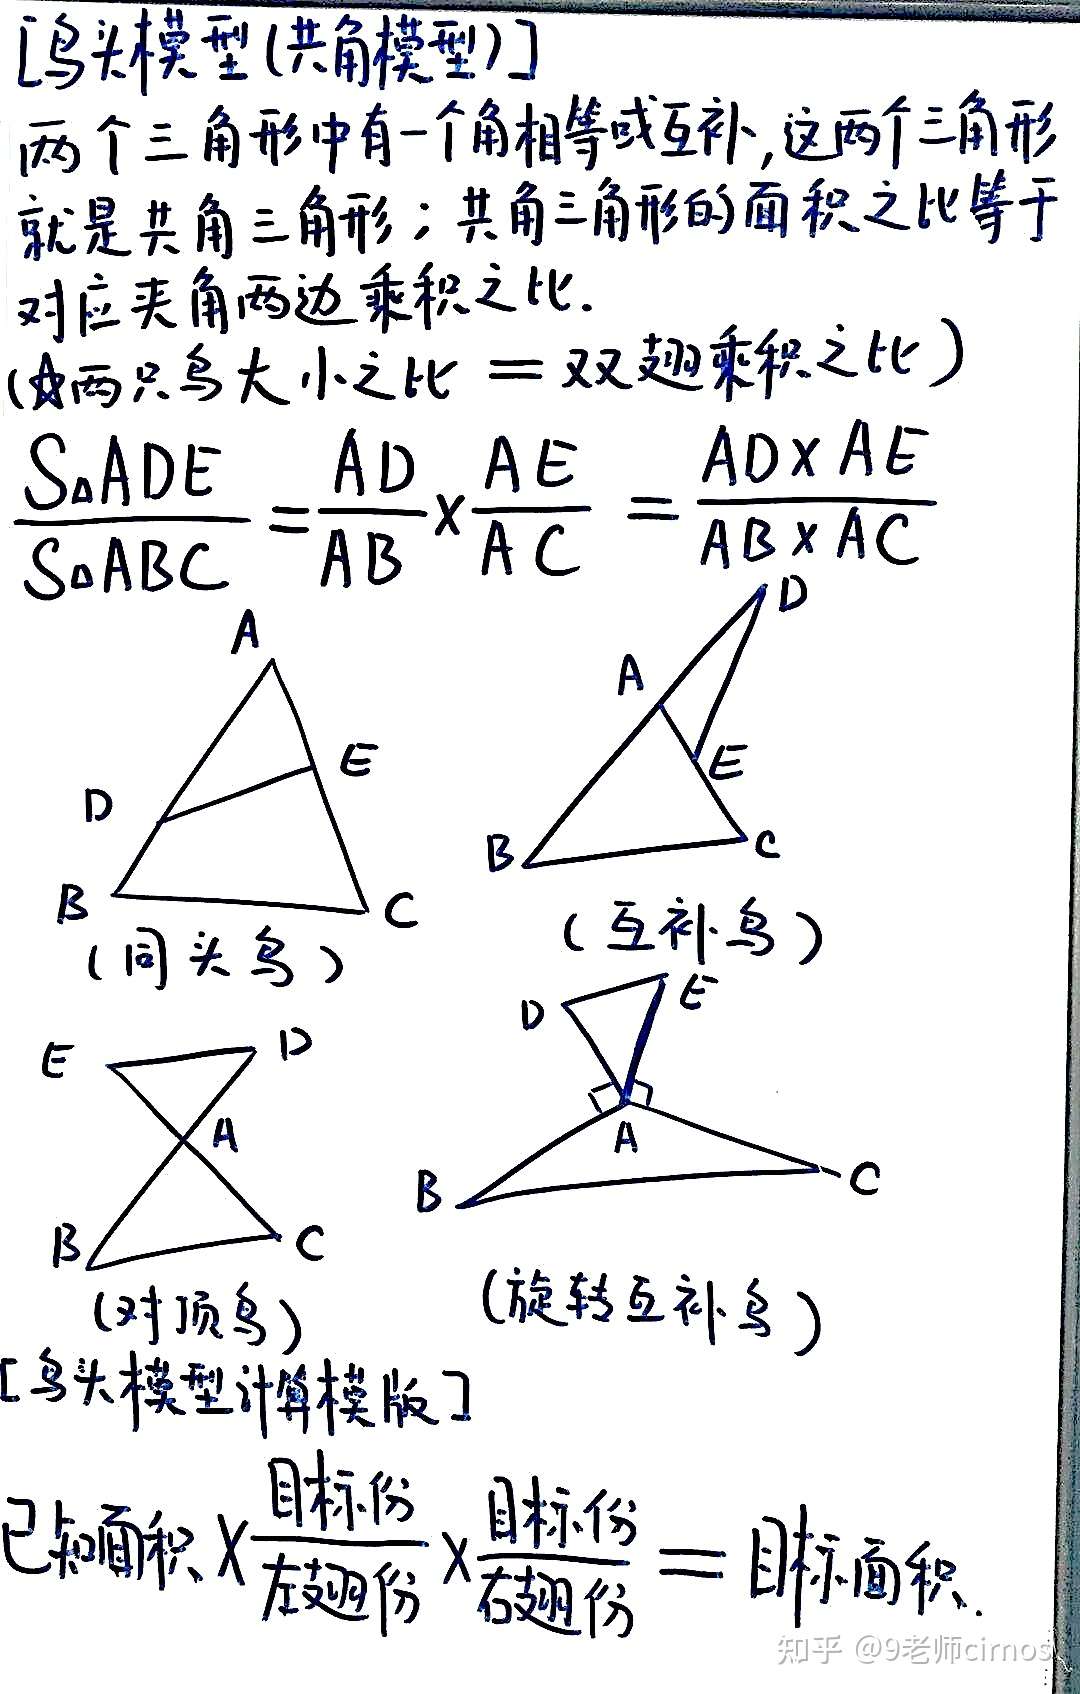 [鸟头模型(共角模型)]
两个三角形中有一个角相等或互补,这两个三角形
就是共角三角形;共角三角形的面积之比等于
对应夹角两边乘积之比.
(☆两只鸟大小之比=双翅乘积之比)
S△ADE/S△ABC=AD/AB×AE/AC=AD×AE/AB×AC
A
D
E
B
C
(同头鸟)
D
A
E
B
C
(互补鸟)
E
D
A
B
C
(对顶鸟)
D
E
A
B
C
(旋转互补鸟)
[鸟头模型计算模版]
已知面积×目标份/左翅份×目标份/右翅份=目标面积.
知乎 @9老师cirnos